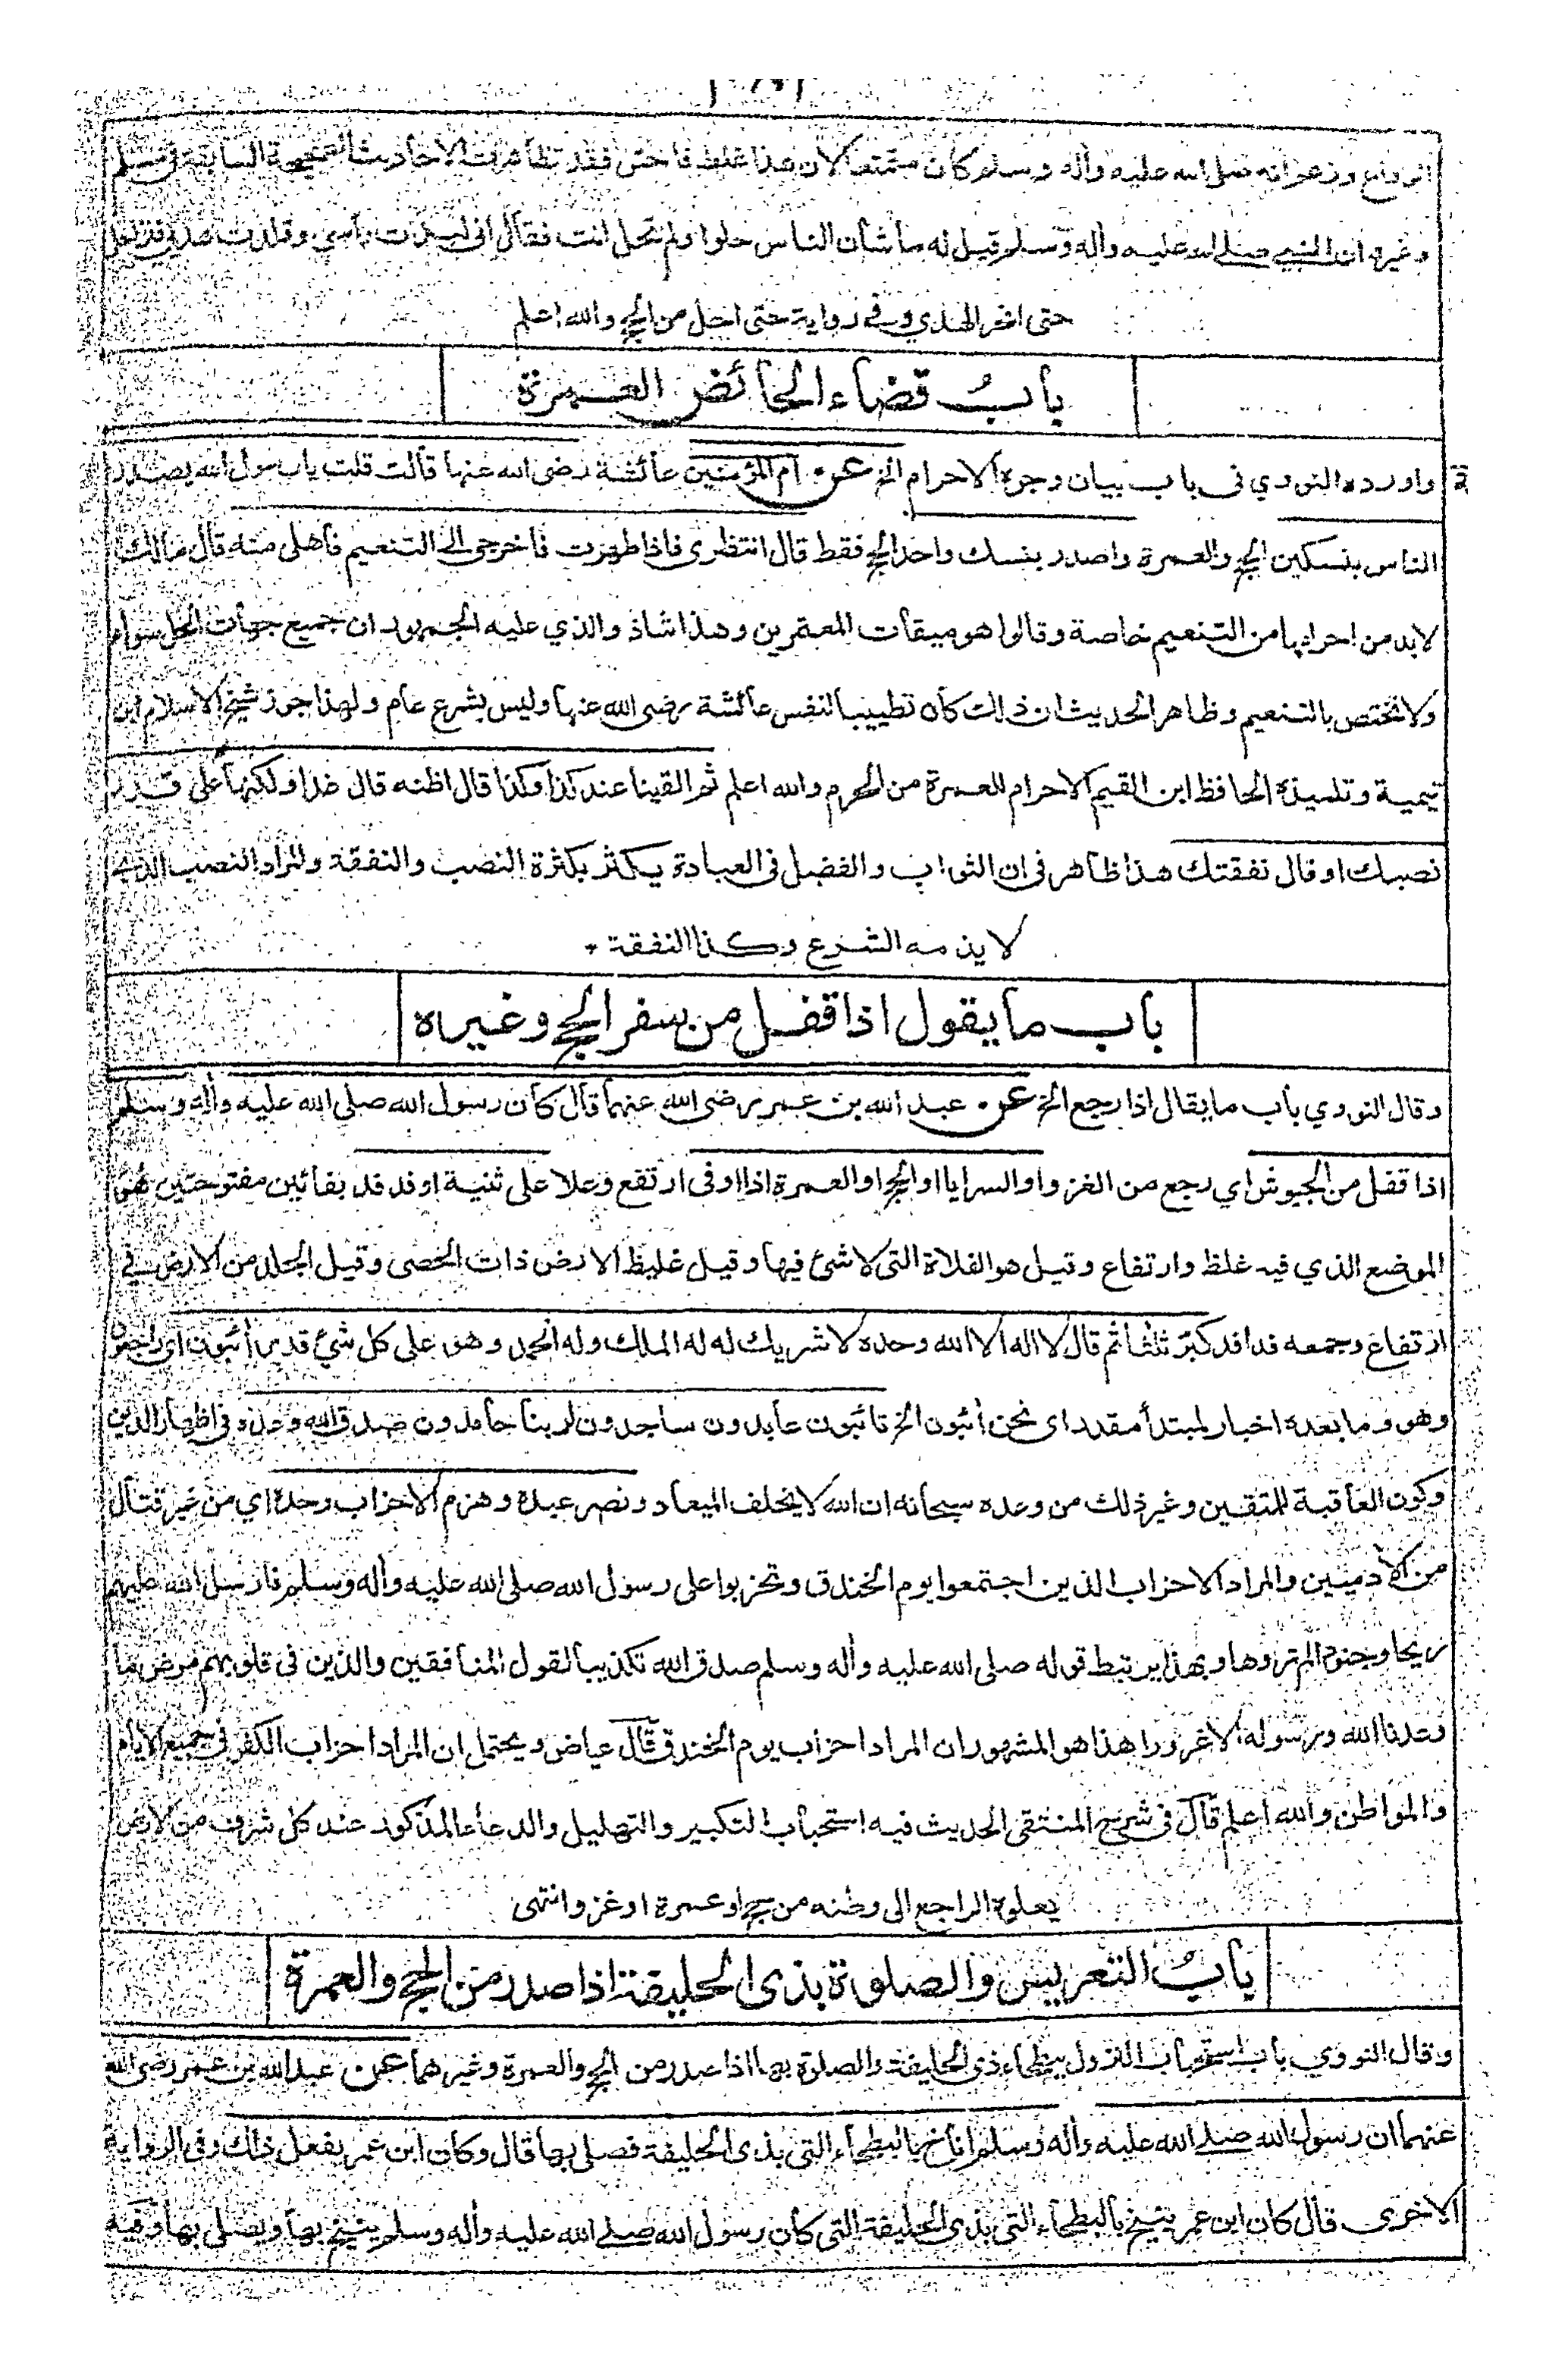 الوداع وزعم انه صلى الله عليه وأله وسلم كان متمتعا لان هذا غلط فاحش فقد تظاهرت الاحاديث الصحيحة السابقة فى مسلم
وغيره ان النبي صلى الله عليه وأله وسلم قيل له ما شأن الناس حلوا ولم تحل انت فقال انى لبدت رأسي وقلدت هديي فلا احل
حتى انحر الهدي وفي رواية حتى احل من الحج والله اعلم
باب قضاء الحائض العمرة
واورده النووي فى باب بيان وجوه الاحرام الخ عن ام المؤمنين عائشة رضى الله عنها قالت قلت يا رسول الله يصدر
الناس بنسكين الحج والعمرة واصدر بنسك واحد الحج فقط قال انتظرى فاذا طهرت فاخرجى الى التنعيم فاهلى منه قال مالك
لابد من احرامها من التنعيم خاصة وقالوا هو ميقات المعتمرين وهذا شاذ والذي عليه الجمهور ان جميع جهات الحل سواء
ولا تختص بالتنعيم وظاهر الحديث ان ذلك كان تطييبا لنفس عائشة رضى الله عنها وليس بشرع عام ولهذا جوز شيخ الاسلام ابن
تيمية وتلميذه الحافظ ابن القيم الاحرام للعمرة من الحرم والله اعلم ثم القينا عند كذا وكذا قال اظنه قال غدا ولكنها على قدر
نصبك او قال نفقتك هذا ظاهر فى ان الثواب والفضل فى العبادة يكثر بكثرة النصب والنفقة والمراد النصب الذي
لا يذمه الشرع وكذا النفقة
باب ما يقول اذا قفل من سفر الحج وغيره
وقال النووي باب ما يقال اذا رجع الخ عن عبد الله بن عمر رضى الله عنهما قال كان رسول الله صلى الله عليه وأله وسلم
اذا قفل من الجيوش اي رجع من الغزو او السرايا او الحج او العمرة اذا اوفى ارتفع وعلا على ثنية او فدفد بفائين مفتوحتين هو
الموضع الذي فيه غلظ وارتفاع وقيل هو الفلاة التى لا شئ فيها وقيل غليظ الارض ذات الحصى وقيل الجلد من الارض في
ارتفاع وجمعه فدافد كبر ثلثا ثم قال لا اله الا الله وحده لا شريك له له الملك وله الحمد وهو على كل شئ قدير أئبون اى راجعون
وهو وما بعده اخبار لمبتدأ مقدر اى نحن أئبون الخ تائبون عابدون ساجدون لربنا حامدون صدق الله وعده فى اظهار الدين
وكون العاقبة للمتقين وغير ذلك من وعده سبحانه ان الله لا يخلف الميعاد ونصر عبده وهزم الاحزاب وحده اي من غير قتال
من الأدميين والمراد الاحزاب الذين اجتمعوا يوم الخندق وتحزبوا على رسول الله صلى الله عليه وأله وسلم فارسل الله عليهم
ريحا وجنودا لم تروها وبهذا يرتبط قوله صلى الله عليه وأله وسلم صدق الله تكذيبا لقول المنافقين والذين فى قلوبهم مرض ما
وعدنا الله ورسوله الا غرورا هذا هو المشهور ان المراد احزاب يوم الخندق قال عياض ويحتمل ان المراد احزاب الكفر فى جميع الايام
والمواطن والله اعلم قال فى شرح المنتقى الحديث فيه استحباب التكبير والتهليل والدعاء المذكور عند كل شرف من الارض
يعلوه الراجع الى وطنه من حج او عمرة او غزو انتهى
باب التعريس والصلوة بذى الحليفة اذا صدر من الحج والعمرة
وقال النووي باب استحباب النزول ببطحاء ذى الحليفة والصلوة بها اذا صدر من الحج والعمرة وغيرهما عن عبد الله بن عمر رضى الله
عنهما ان رسول الله صلى الله عليه وأله وسلم اناخ بالبطحاء التى بذى الحليفة فصلى بها قال وكان ابن عمر يفعل ذلك وفى الرواية
الاخرى قال كان ابن عمر ينيخ بالبطحاء التى بذى الحليفة التى كان رسول الله صلى الله عليه وأله وسلم ينيخ بها ويصلى بها وفيه